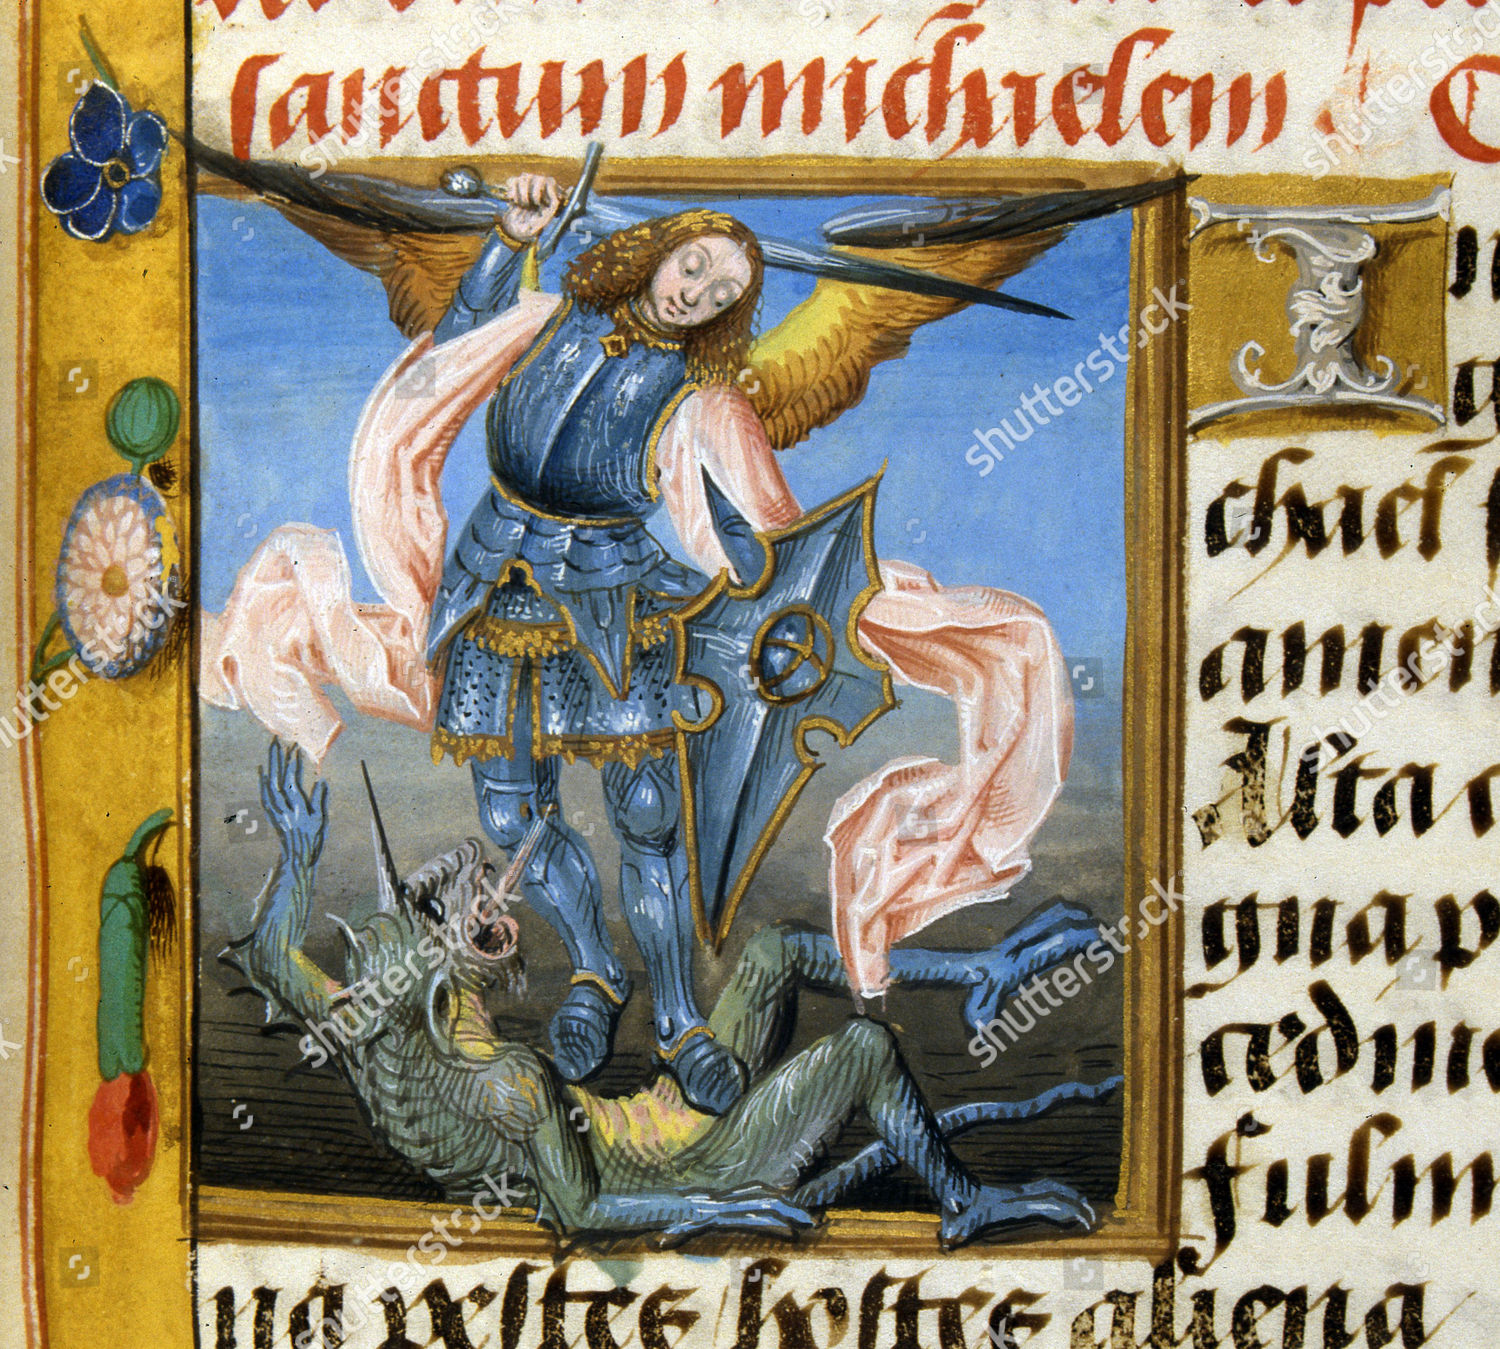 sanctum michaelem
I
chael
amen
Asta
gna p
fulm
na pestes / hostes aliena
shutterstock